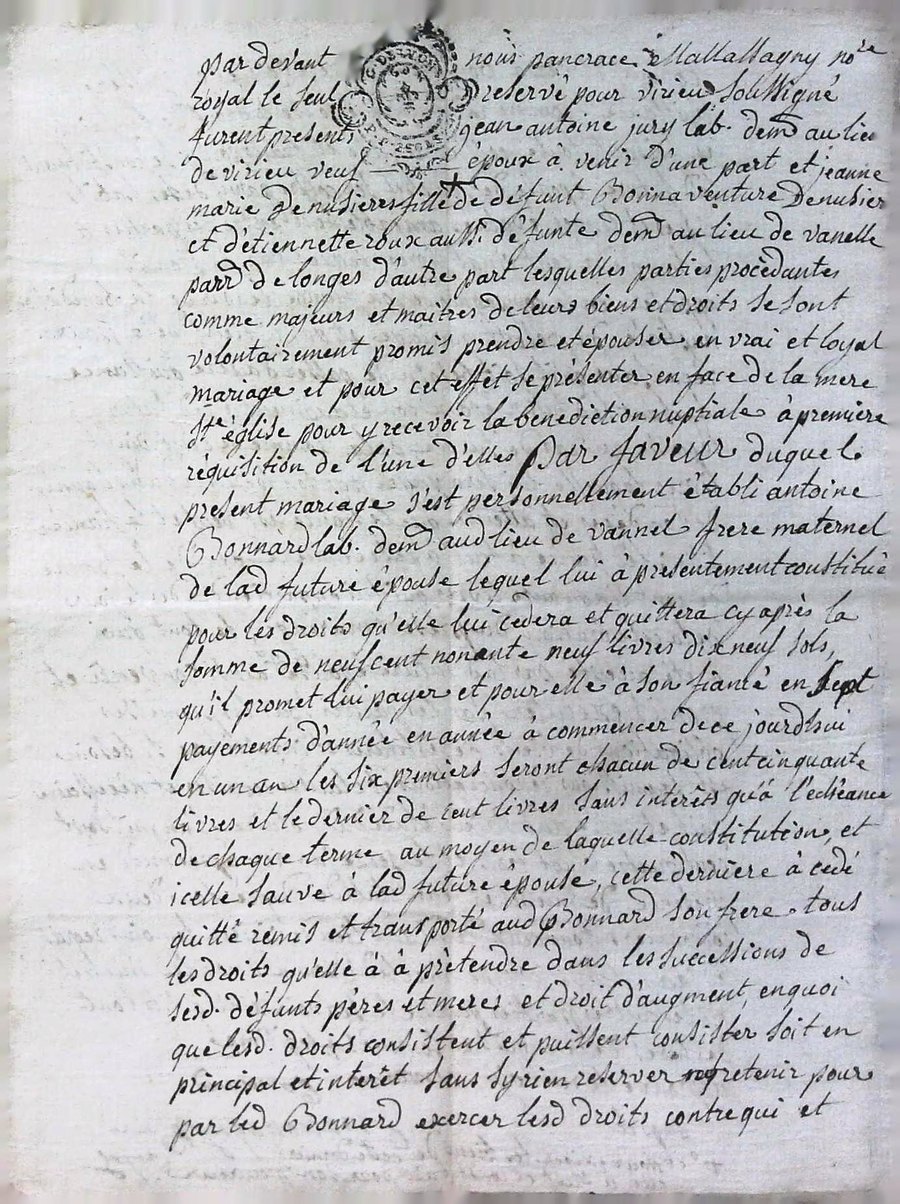 par devant nous pancrace Mallassagny no.re
royal le seul reservé pour virieu soussigné
furent presents jean antoine jury lab. demt au lieu
de virieu veuf époux à venir d'une part et jeanne
marie Denusieres fille de défunt Bonnaventure Denusier
et d'étiennette roux aussi défunte demt au lieu de vanelle
parr de longes d'autre part lesquelles parties procèdantes
comme majeurs et maitres de leurs biens et droits se sont
volontairement promis prendre et épouser en vrai et loyal
mariage et pour cet effet se présenter en face de la mere
Ste église pour y recevoir la benediction nuptiale à première
réquisition de l'une d'elles Par faveur duquel
present mariage s'est personnellement établi antoine
Bonnard lab. demt aud lieu de vannel frere maternel
de lad future épouse lequel lui à presentement constitué
pour les droits qu'elle lui cedera et quittera cy après la
somme de neuf cent nonante neuf livres dix neuf sols,
qu'il promet lui payer et pour elle à son fiancé en sept
payements d'année en année à commencer de ce jourdhui
en un an les six premiers seront chacun de cent cinquante
livres et le dernier de cent livres sans interêts qu'à l'echéance
de chaque terme au moyen de laquelle constitution, et
icelle sauve à lad future épouse, cette derniere à cedé
quitté remis et transporté aud Bonnard son frere tous
les droits qu'elle à à prètendre dans les successions de
sesd. défunts pères et meres et droit d'augment, en quoi
que lesd. droits consistent et puissent consister soit en
principal et interêt sans sy rien reserver retenir pour
par led Bonnard exercer lesd droits contre qui et